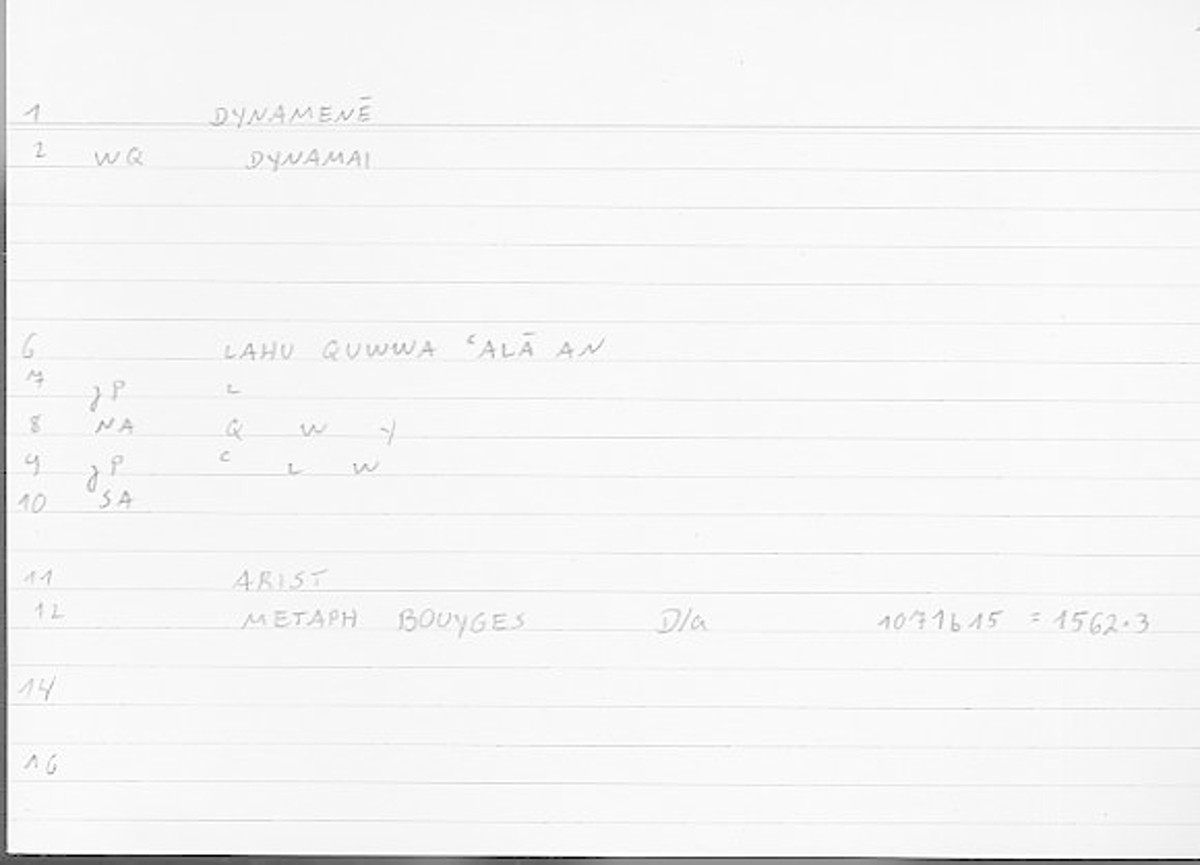 1 DYNAMENĒ
2 WQ DYNAMAI
6 LAHU QUWWA ʿALĀ AN
7 JP L
8 NA Q W Y
9 JP ʿ L W
10 SA
11 ARIST
12 METAPH BOUYGES D/a 1071b15 = 1562.3
14
16